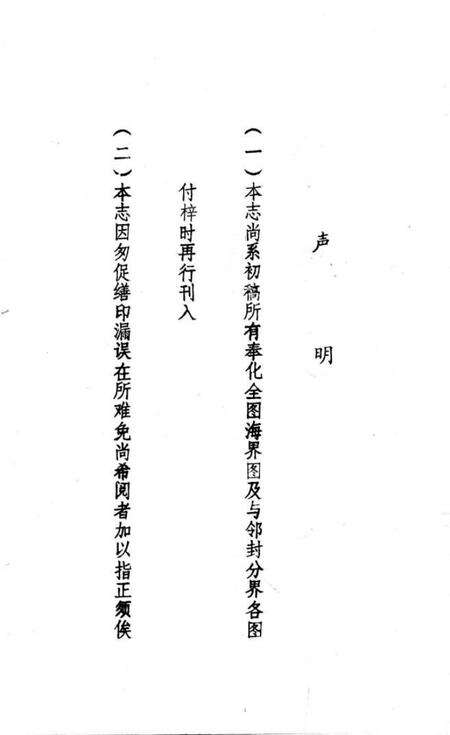 声明
（一）本志尚系初稿所有奉化全图海界图及与邻封分界各图
付梓时再行刊入
（二）本志因匆促缮印漏误在所难免尚希阅者加以指正须俟